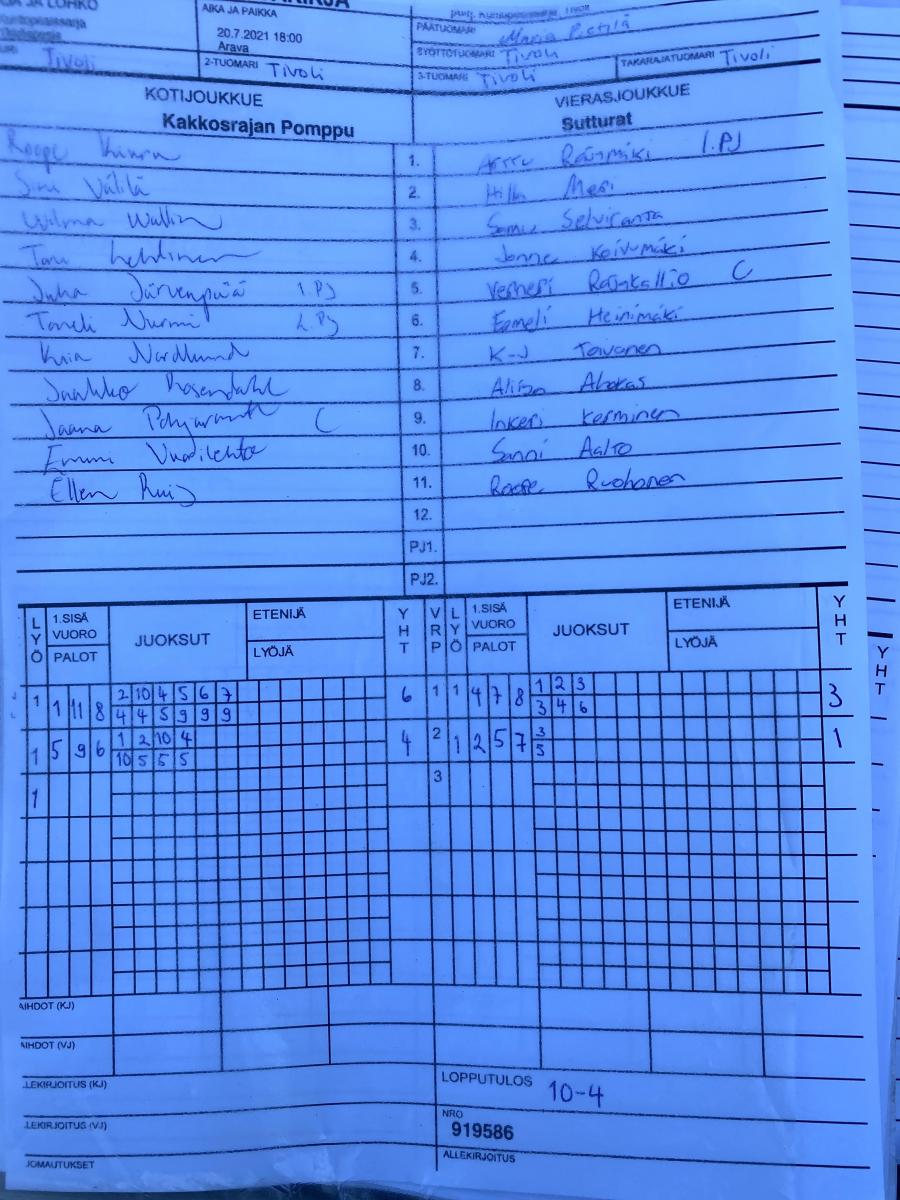 AIKA JA PAIKKA
20.7.2021 18:00
Arava
PÄÄTUOMARI Maria Pietilä
SYÖTTÖTUOMARI Tivoli
Tivoli
2-TUOMARI Tivoli
3-TUOMARI Tivoli
TAKARAJATUOMARI Tivoli
KOTIJOUKKUE
VIERASJOUKKUE
Kakkosrajan Pomppu
Sutturat
Roope 1. Arttu Rajamäki 1.PJ
Sini Välilä 2. Hilla Mesi
Wilma Wallin 3. Samu Selviranta
Toni Lehtinen 4. Jonne Koivumäki
Juha Järvenpää 1.PJ 5. Verneri C
Taneli Nurmi 2.PJ 6. Eemeli Heinimäki
Kaia Nordlund 7. K-J Toivanen
Jaakko Rosendahl 8. Aliisa Ahokas
Jaana C 9. Inkeri Kerminen
Emmi Vuorilehto 10. Sanni Aalto
Ellen Ruig 11. Roope Ruohonen
12.
PJ1.
PJ2.
LYÖ 1.SISÄ VUORO PALOT JUOKSUT ETENIJÄ LYÖJÄ YHT VRP LYÖ 1.SISÄ VUORO PALOT JUOKSUT ETENIJÄ LYÖJÄ YHT
YHT
1 1 11 8 2 10 4 5 6 7 6 1 1 4 7 8 1 2 3 3
4 4 5 9 9 9 3 4 6
1 5 9 6 1 2 10 4 4 2 1 2 5 7 3 1
10 5 5 5 5
1 3
AIHDOT (KJ)
AIHDOT (VJ)
LEKIRJOITUS (KJ)
LOPPUTULOS 10-4
LEKIRJOITUS (VJ)
NRO
919586
JOMAUTUKSET
ALLEKIRJOITUS